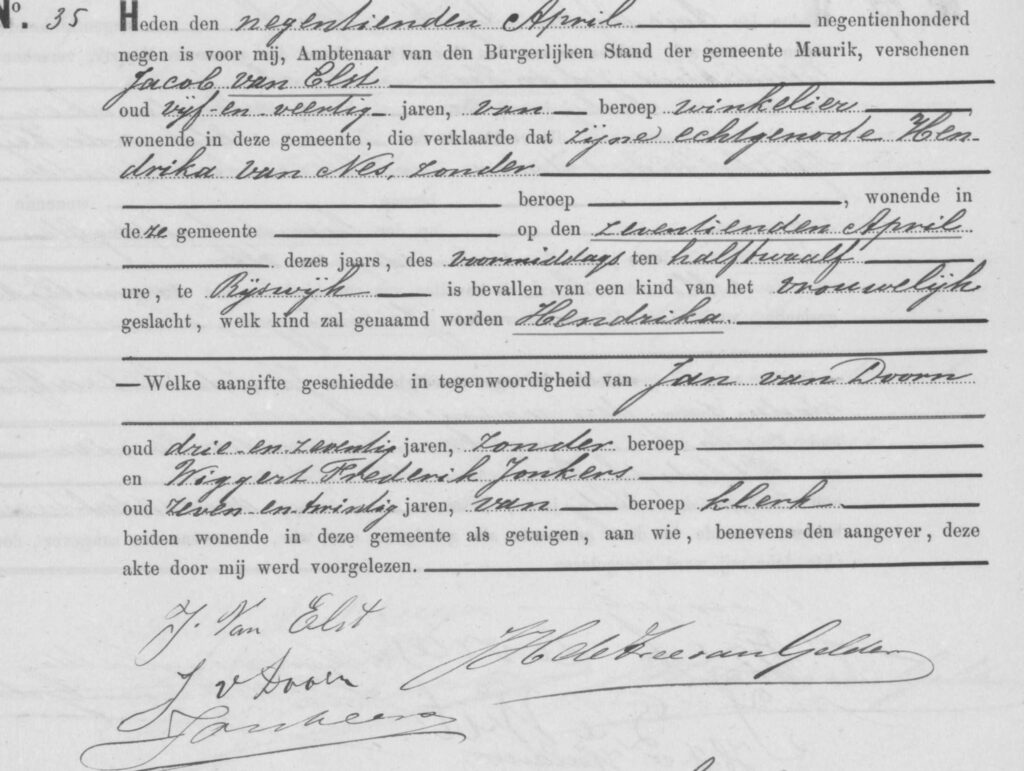 No. 35 Heden den negentienden April negentienhonderd
negen is voor mij, Ambtenaar van den Burgerlijken Stand der gemeente Maurik, verschenen
Jacob van Elst
oud vijf en veertig jaren, van beroep winkelier
wonende in deze gemeente, die verklaarde dat zijne echtgenoote Hen-
drika van Nes, zonder
beroep , wonende in
deze gemeente op den zeventienden April
dezes jaars, des voormiddags ten half twaalf
ure, te Rijswijk is bevallen van een kind van het vrouwelijk
geslacht, welk kind zal genaamd worden Hendrika
— Welke aangifte geschiedde in tegenwoordigheid van Jan van Doorn
oud drie en zeventig jaren, zonder beroep
en Wiggert Frederik Jonkers
oud zeven en twintig jaren, van beroep klerk
beiden wonende in deze gemeente als getuigen, aan wie, benevens den aangever, deze
akte door mij werd voorgelezen.
J. Van Elst
H de Kree van Gelder
J v Doorn
Jonkers